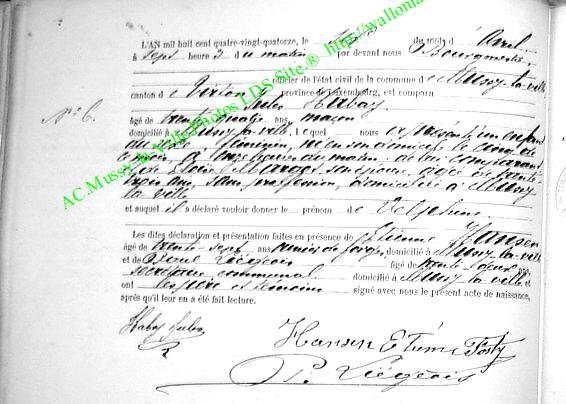 L'AN mil huit cent quatre-vingt-quatorze, le du mois d'Avril
à sept heures du matin par devant nous Bourgmestre
officier de l'état civil de la commune de Mussy-la-ville
canton de Virton province de Luxembourg, est comparu
N° 6. Jules Habay
âgé de trente quatre ans, maçon
domicilié à Mussy-la-ville, lequel nous a présenté un enfant
du sexe féminin, né en son domicile le cinq de
ce mois, à onze heures du matin; de lui comparant
et de son épouse, âgée de trente
trois ans, sans profession, domiciliée à Mussy
la ville
et auquel il a déclaré vouloir donner le prénom de Delphine.
Les dites déclaration et présentation faites en présence de Etienne Hansen
âgé de trente-sept ans de forges, domicilié à Mussy-la-ville
et de Paul Liégeois âgé de trente deux ans,
secrétaire communal domicilié à Mussy-la-ville et
ont les père et témoins signé avec nous le présent acte de naissance,
après qu'il leur en a été fait lecture.
Habay Jules
Hansen Etienne Fosty
P. Liégeois
AC.Mussy-la-Ville-Photos LDS Site ® http://wallonia